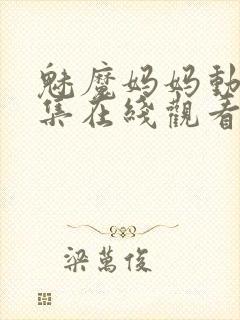 魅魔妈妈動
集在綫觀看
梁萬俊